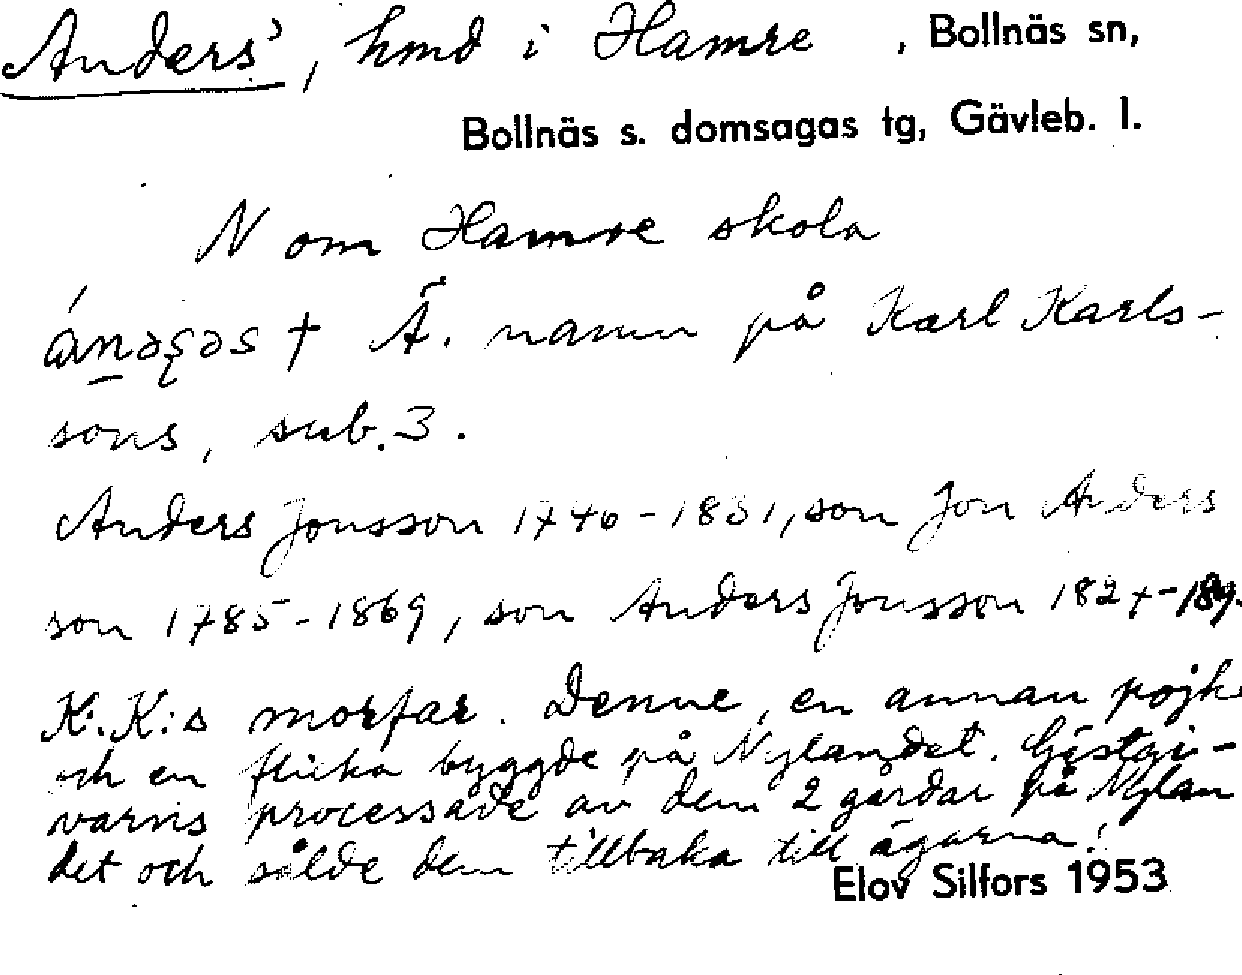 Anders', hmd i Hamre , Bollnäs sn,
Bollnäs s. domsagas tg, Gävleb. l.
N om Hamre skola
† Ä. namn på Karl Karls-
sons, sub. 3.
Anders Jonsson 1746-1831, son Jon Anders
son 1785-1869, son Anders Jonsson 1824-
K.K:s morfar. Denne, en annan pojk
och en flicka byggde på Nylandet. Gästgi-
varns processade av dem 2 gårdar på Nylan
det och sålde dem tillbaka till ägarna!
Elov Silfors 1953